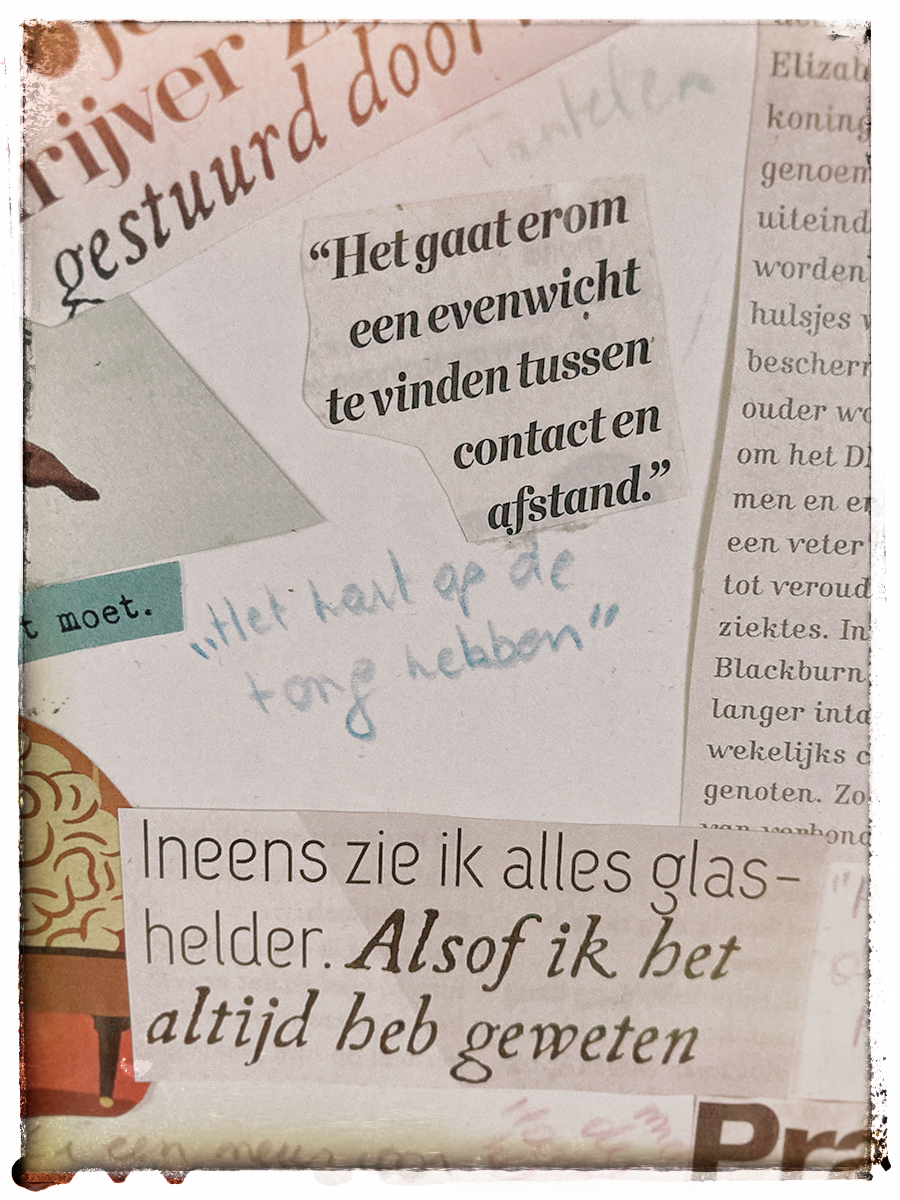 gestuurd door
Tantelem
“Het gaat erom
een evenwicht
te vinden tussen
contact en
afstand.”
moet.
„Het hart op de
tong hebben”
Ineens zie ik alles glas-
helder. Alsof ik het
altijd heb geweten
Elizab
koning
genoem
uiteind
worden
hulsjes v
bescherr
ouder wo
om het DN
men en er
een veter
tot veroud
ziektes. In
Blackburn
langer inta
wekelijks c
genoten. Zo
Pra
een